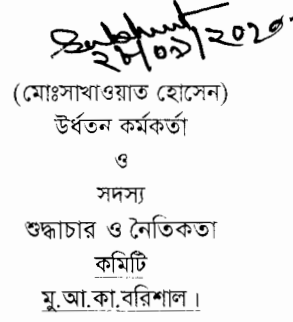 ২৮/০৯/২০২০
(মোঃসাখাওয়াত হোসেন)
উর্ধতন কর্মকর্তা
ও
সদস্য
শুদ্ধাচার ও নৈতিকতা
কমিটি
মু.আ.কা.বরিশাল।